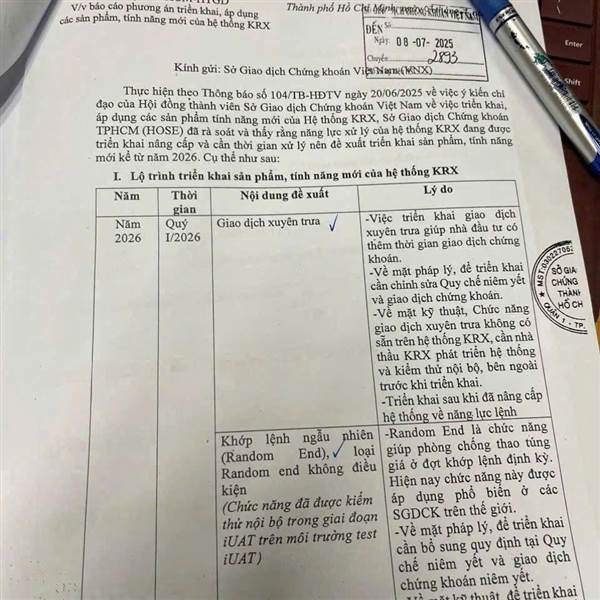 V/v báo cáo phương án triển khai, áp dụng
các sản phẩm, tính năng mới của hệ thống KRX
Thành phố Hồ Chí Minh, ngày
ĐẾN Số:
Ngày: 08-07-2025
Chuyển: 2893
Kính gửi: Sở Giao dịch Chứng khoán Việt Nam (VNX)
Thực hiện theo Thông báo số 104/TB-HĐTV ngày 20/06/2025 về việc ý kiến chỉ
đạo của Hội đồng thành viên Sở Giao dịch Chứng khoán Việt Nam về việc triển khai,
áp dụng các sản phẩm tính năng mới của Hệ thống KRX, Sở Giao dịch Chứng khoán
TPHCM (HOSE) đã rà soát và thấy rằng năng lực xử lý của hệ thống KRX đang được
triển khai nâng cấp và cần thời gian xử lý nên đề xuất triển khai sản phẩm, tính năng
mới kể từ năm 2026. Cụ thể như sau:
I. Lộ trình triển khai sản phẩm, tính năng mới của hệ thống KRX
Năm
Thời
gian
Nội dung đề xuất
Lý do
Năm
2026
Quý
I/2026
Giao dịch xuyên trưa
-Việc triển khai giao dịch
xuyên trưa giúp nhà đầu tư có
thêm thời gian giao dịch chứng
khoán.
-Về mặt pháp lý, để triển khai
cần chỉnh sửa Quy chế niêm yết
và giao dịch chứng khoán.
-Về mặt kỹ thuật, Chức năng
giao dịch xuyên trưa không có
sẵn trên hệ thống KRX, cần nhà
thầu KRX phát triển hệ thống
và kiểm thử nội bộ, bên ngoài
trước khi triển khai.
-Triển khai sau khi đã nâng cấp
hệ thống về năng lực lệnh
Khớp lệnh ngẫu nhiên
(Random End), loại
Random end không điều
kiện
(Chức năng đã được kiểm
thử nội bộ trong giai đoạn
iUAT trên môi trường test
iUAT)
-Random End là chức năng
giúp phòng chống thao túng
giá ở đợt khớp lệnh định kỳ.
Hiện nay chức năng này được
áp dụng phổ biến ở các
SGDCK trên thế giới.
-Về mặt pháp lý, để triển khai
cần bổ sung quy định tại Quy
chế niêm yết và giao dịch
chứng khoán niêm yết.
-Về mặt kỹ thuật, để triển khai
SỞ GIA
CHỨNG
THÀN
HỒ CH
QUẬN 1 - TP.
Enter
Shift